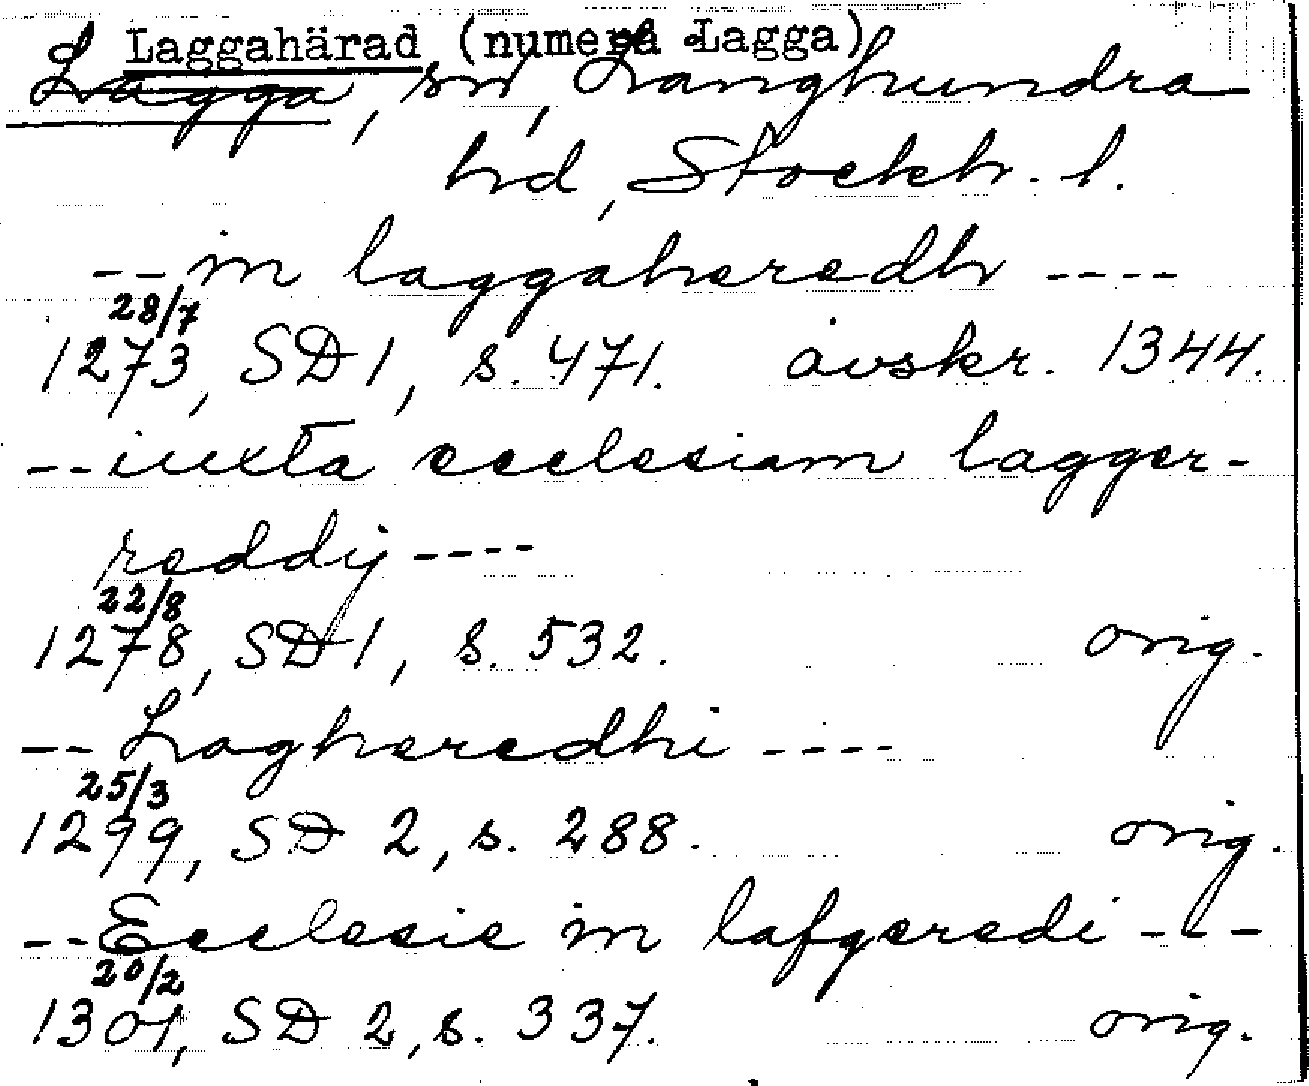 Laggahärad (numera Lagga)
Lagga, sn, Långhundra
hd, Stockh. l.
-- in laggaheredh ----
28/7
1273, SD 1, s. 471. avskr. 1344.
-- iuxta ecclesiam lagger-
reddij ----
22/8
1278, SD 1, s. 532. orig.
-- Lagheredhi ----
25/3
1299, SD 2, s. 288. orig.
-- Ecclesie in lafgeredi ---
20/2
1301, SD 2, s. 337. orig.